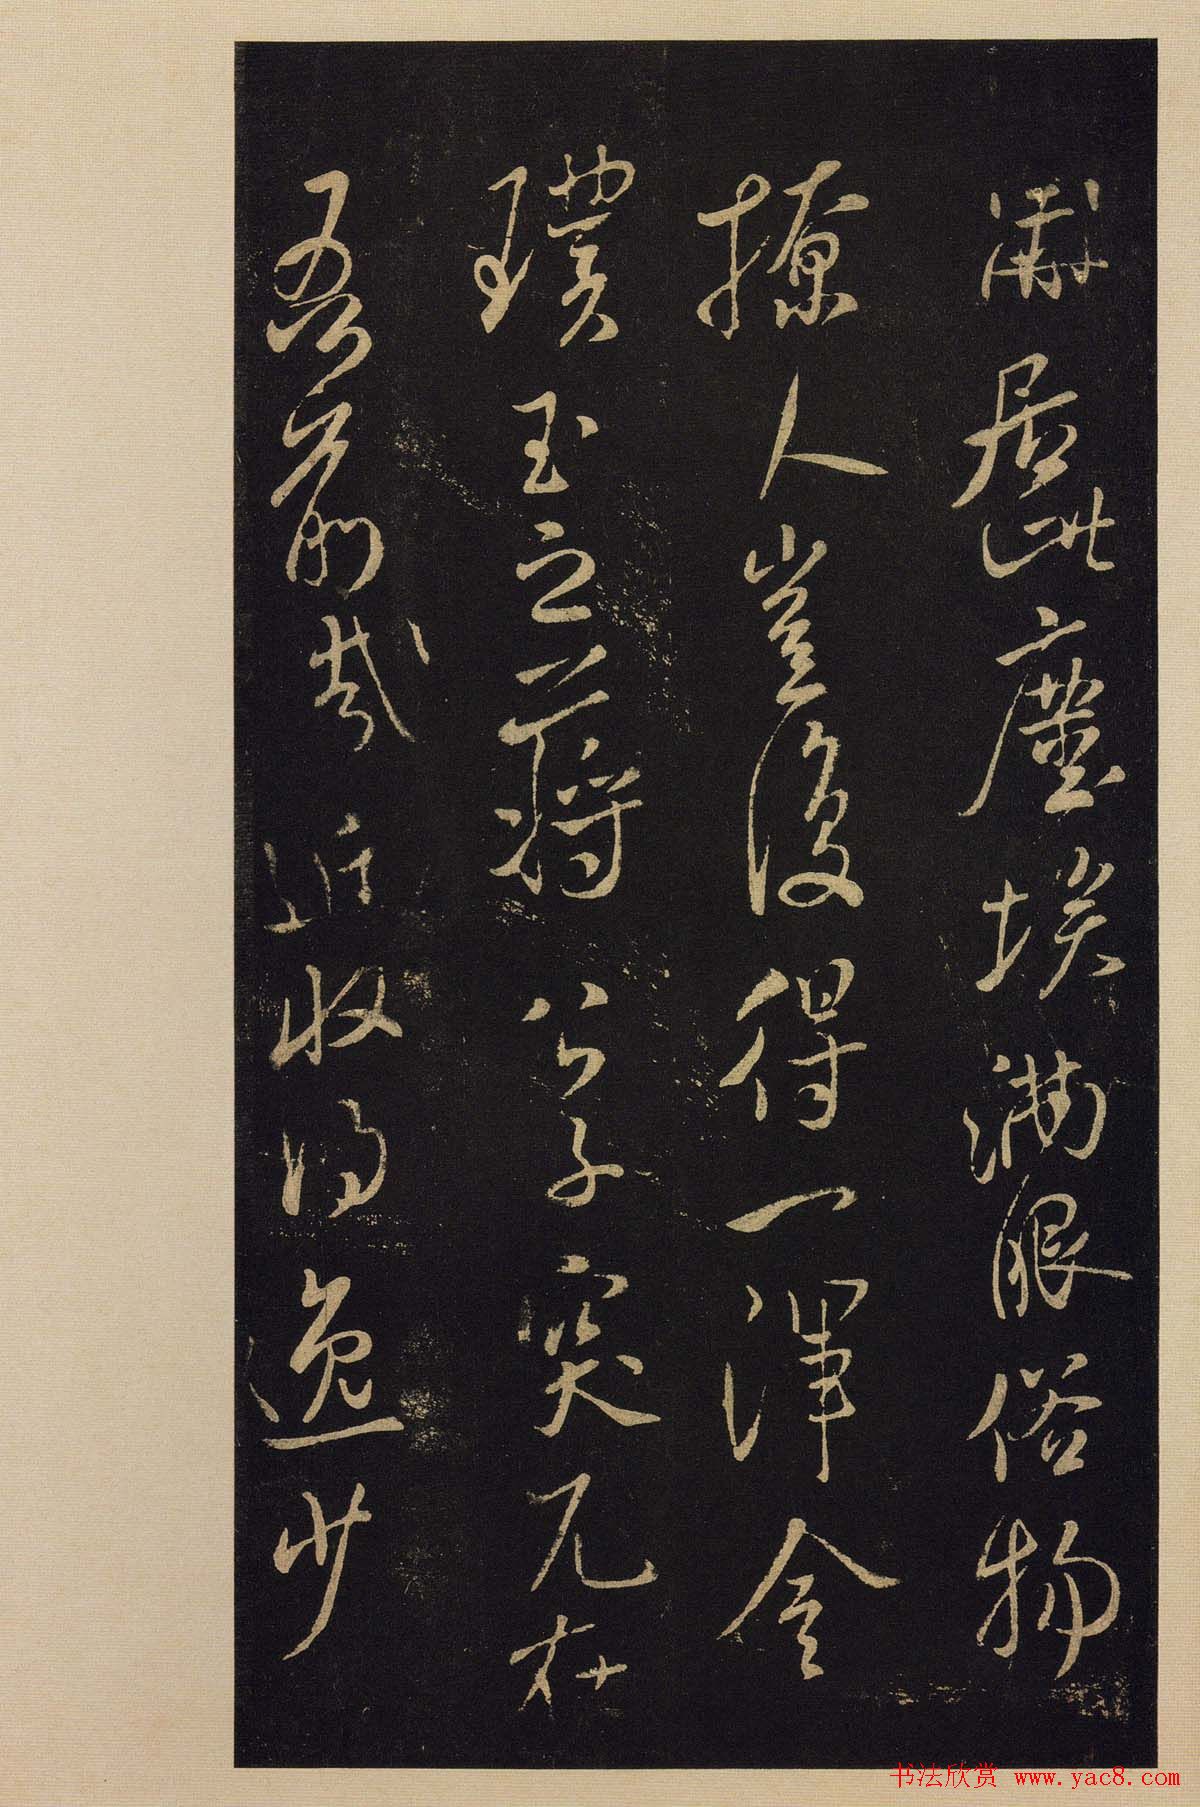 居此塵埃滿眼俗物
撩人豈復得一渾金
璞玉之蔣公子突兀在
吾前哉近收得逸少
书法欣赏 www.yac8.com